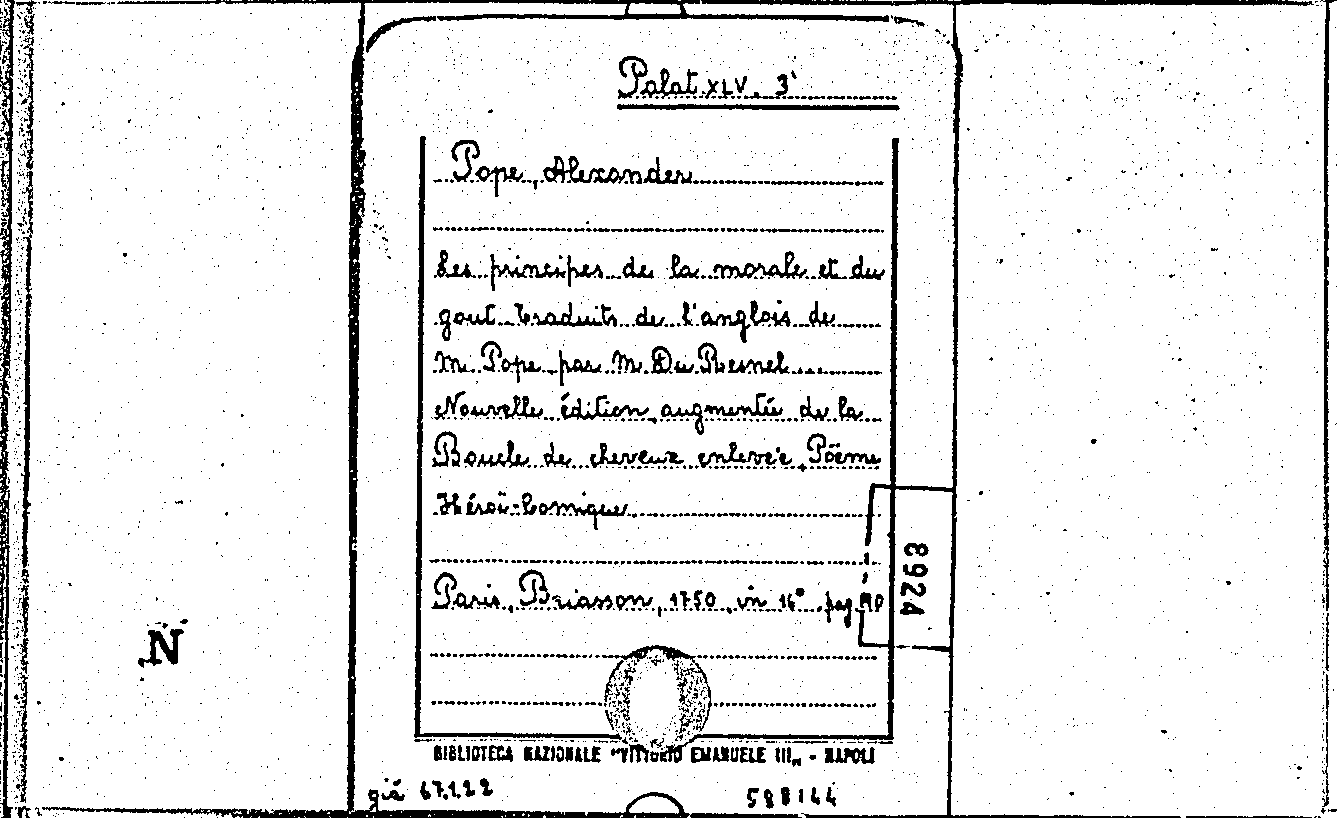 Palat. XLV. 3'
Pope, Alexander
Les principes de la morale et du
gout traduits de l'anglois de
M. Pope par M. Du Resnel....
Nouvelle édition augmentée de la
Boucle de cheveux enlevée, Poëme
Héroï-Comique.
Paris, Briasson, 1750, in 16°. pag.
8924
N
BIBLIOTECA NAZIONALE "VITTORIO EMANUELE III„ - NAPOLI
già 67.1.22
588144